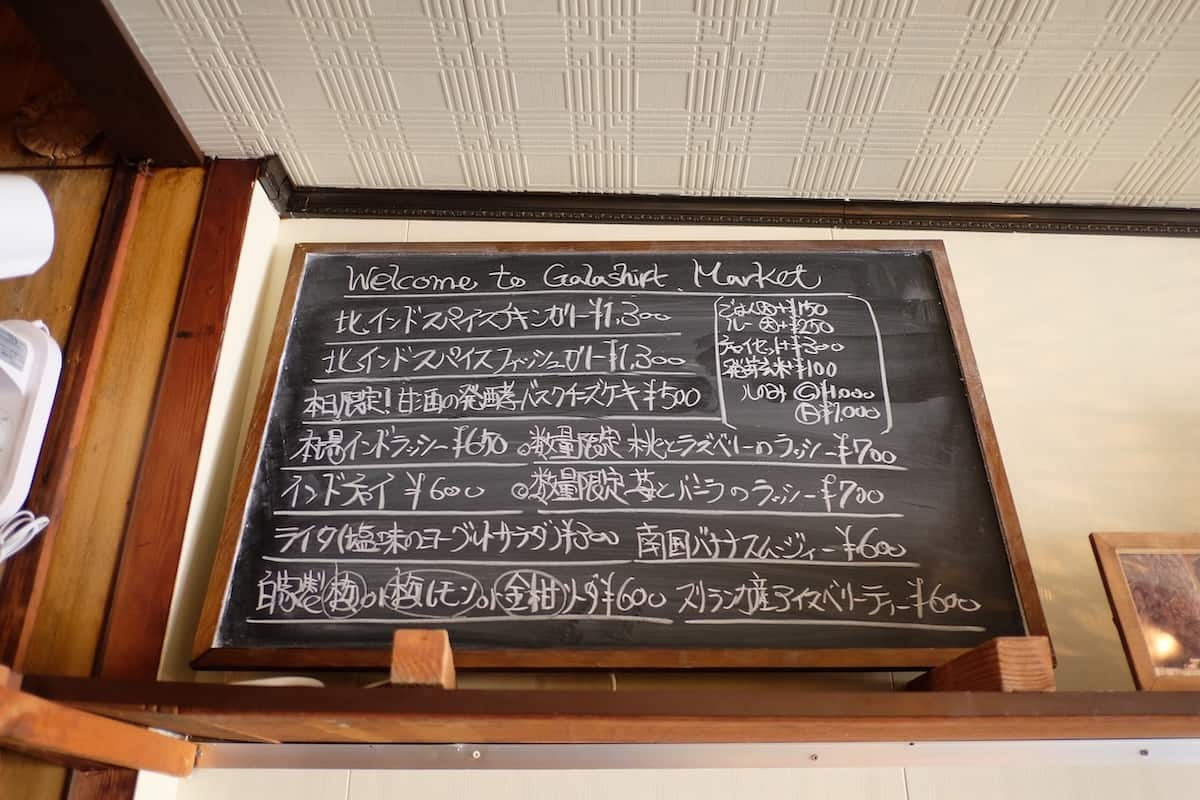 Welcome to Galashirt Market
北インドスパイスチキンカリー ¥1,300
北インドスパイスフィッシュカリー ¥1,300
本日限定!甘酒の発酵バスクチーズケーキ ¥500
ごはん大 + ¥150
ルー大 + ¥250
チャイセット + ¥300
発芽玄米 ¥100
ルのみ Ⓒ ¥1,000
¥1,000
本場インドラッシー ¥650 ◎数量限定 桃とラズベリーのラッシー ¥700
インドチャイ ¥600 ◎数量限定 苺とバニラのラッシー ¥700
ライタ(塩味のヨーグルトサラダ) ¥300 南国バナナスムージィー ¥600
自家製 梅 or 梅レモン or 金柑ソーダ ¥600 スリランカ産アイスベリーティー ¥600